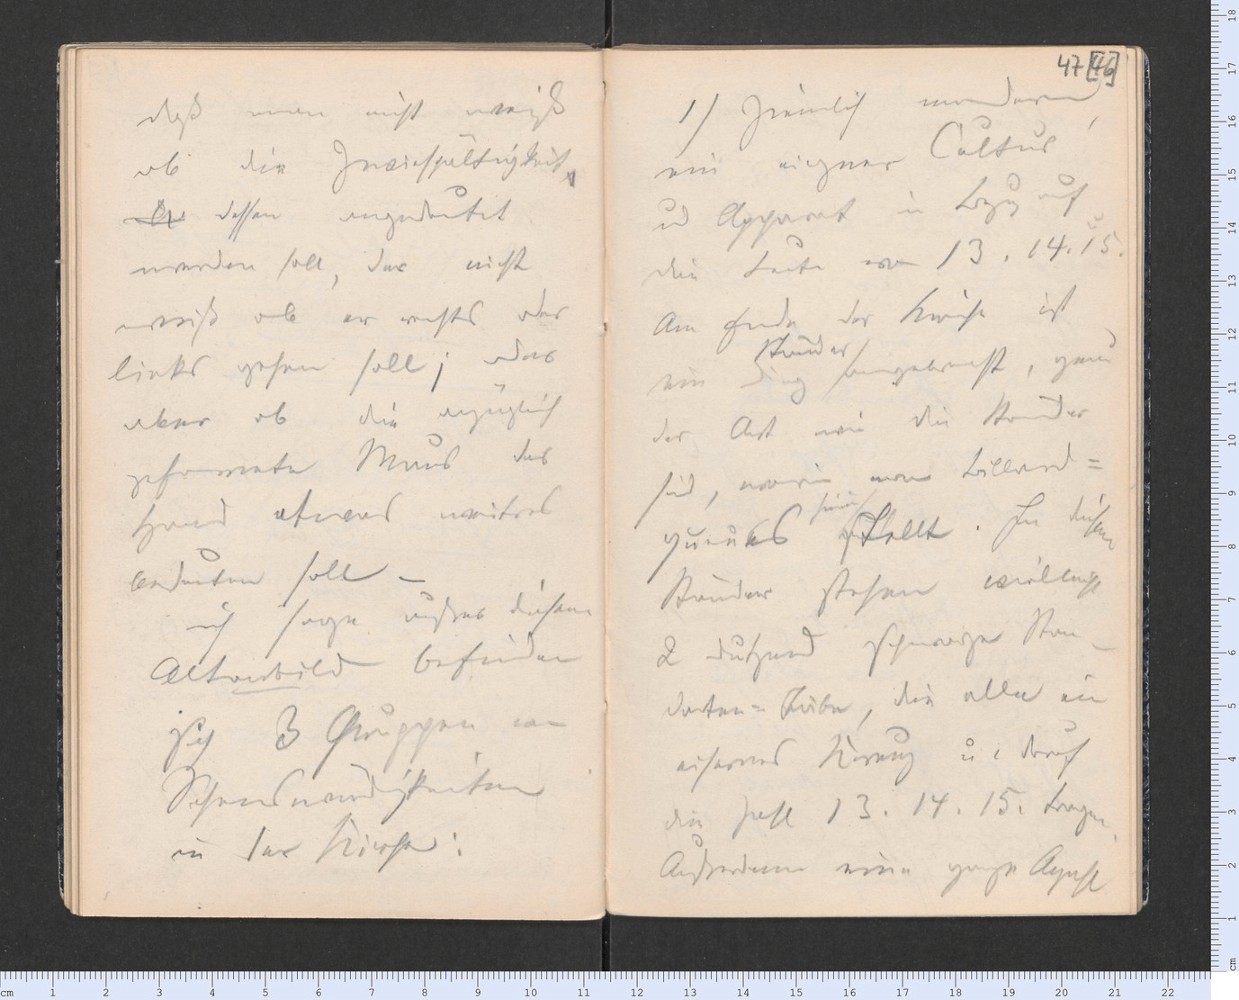 daß man nicht weiß
ob die Zwiespältigkeit
dessen angedeutet
werden soll, der nicht
weiß ob er rechts oder
links gehen soll; oder
aber ob die anzüglich
geformte Maus der
Hand etwas weitres
bedeuten soll –
ich sage außer diesem
Altarbild befinden
sich 3 Gruppen von
Sehenswürdigkeiten
in der Kirche:
47 [46]
1) Ziemlich modern,
ein eigner Cultus
und Apparat in Bezug auf
die Leute von 13. 14. 15.
Am Ende der Kirche ist
ein Ständer angebracht, ganz
der Art wie die Ständer
sind, worin man Billard=
queues hinein stellt. In diesem
Ständer stehen
2 Dutzend schwarze Stan-
darten=Stäbe, die alle ein
eisernes Kreuz u. drauf
die Zahl 13. 14. 15. tragen.
Außerdem eine ganze Anzahl